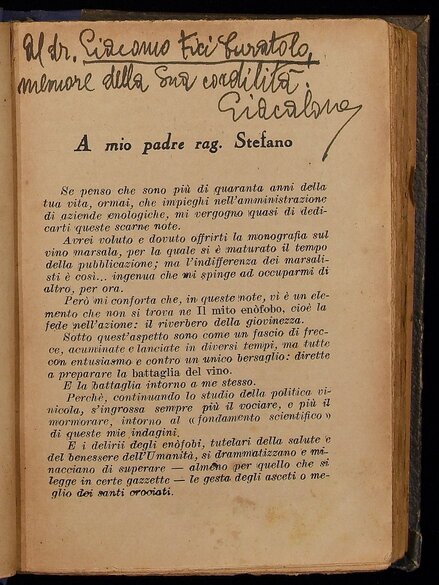 Al dr. Giacomo Fici Curatolo,
memore della Sua cordilità.
Giacalone
A mio padre rag. Stefano
Se penso che sono più di quaranta anni della
tua vita, ormai, che impieghi nell'amministrazione
di aziende enologiche, mi vergogno quasi di dedi-
carti queste scarne note.
Avrei voluto e dovuto offrirti la monografia sul
vino marsala, per la quale si è maturato il tempo
della pubblicazione; ma l'indifferenza dei marsali-
sti è così... ingenua che mi spinge ad occuparmi di
altro, per ora.
Però mi conforta che, in queste note, vi è un ele-
mento che non si trova ne Il mito enòfobo, cioè la
fede nell'azione: il riverbero della giovinezza.
Sotto quest'aspetto sono come un fascio di frec-
ce, acuminate e lanciate in diversi tempi, ma tutte
con entusiasmo e contro un unico bersaglio: dirette
a preparare la battaglia del vino.
E la battaglia intorno a me stesso.
Perchè, continuando lo studio della politica vi-
nicola, s'ingrossa sempre più il vociare, e più il
mormorare, intorno al «fondamento scientifico»
di queste mie indagini.
E i delirii degli enòfobi, tutelari della salute e
del benessere dell'Umanità, si drammatizzano e mi-
nacciano di superare — almeno per quello che si
legge in certe gazzette — le gesta degli asceti o me-
glio dei santi crociati.